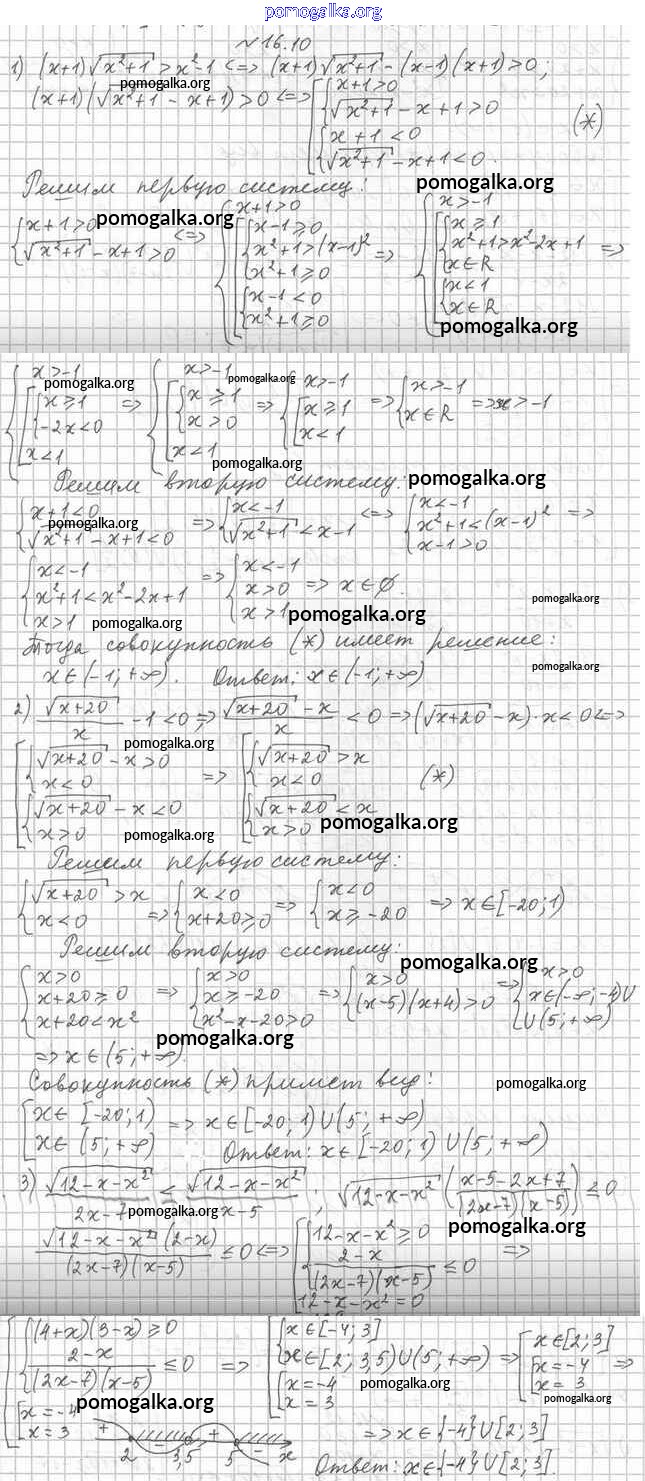 pomogalka.org
№16.10
1) (x+1)√(x²+1) > x²-1 <=> (x+1)√(x²+1) - (x-1)(x+1)>0;
pomogalka.org
(x+1)(√(x²+1) - x+1)>0 <=> [ { x+1>0
√(x²+1) - x+1>0
{ x+1<0
√(x²+1) - x+1<0.
(*)
Решим первую систему:
pomogalka.org
{ x+1>0
√(x²+1) - x+1>0
pomogalka.org
<=> { x+1>0
[ { x-1⩾0
x²+1>(x-1)²
x²+1⩾0
{ x-1<0
x²+1⩾0
=> { x>-1
[ { x⩾1
x²+1>x²-2x+1
x∈R
{ x<1
x∈R
=>
pomogalka.org
{ x>-1
pomogalka.org
[ { x⩾1
-2x<0
x<1
=> { x>-1
pomogalka.org
[ { x⩾1
x>0
x<1
=> { x>-1
[ x⩾1
x<1
=> { x>-1
x∈R
=> x>-1
pomogalka.org
Решим вторую систему:
pomogalka.org
{ x+1<0
pomogalka.org
√(x²+1) - x+1<0
=> { x<-1
√(x²+1) < x-1
<=> { x<-1
x²+1<(x-1)²
x-1>0
=>
{ x<-1
x²+1<x²-2x+1
x>1
pomogalka.org
=> { x<-1
x>0
x>1
=> x∈∅.
pomogalka.org
pomogalka.org
Тогда совокупность (*) имеет решение:
x∈(-1;+∞). Ответ: x∈(-1;+∞)
pomogalka.org
2) √(x+20)/x - 1<0 => (√(x+20) - x)/x < 0 => (√(x+20) - x)·x<0 <=>
pomogalka.org
[ { √(x+20) - x>0
x<0
{ √(x+20) - x<0
x>0
pomogalka.org
=> [ { √(x+20) > x
x<0
{ √(x+20) < x
x>0
(*)
pomogalka.org
Решим первую систему:
{ √(x+20) > x
x<0
=> { x<0
x+20⩾0
=> { x<0
x⩾-20
=> x∈[-20;1)
Решим вторую систему:
pomogalka.org
{ x>0
x+20⩾0
x+20<x²
=> { x>0
x⩾-20
x²-x-20>0
=> { x>0
(x-5)(x+4)>0
=> { x>0
x∈(-∞;-4)∪
∪(5;+∞)
pomogalka.org
=> x∈(5;+∞).
Совокупность (*) примет вид:
pomogalka.org
[ x∈[-20;1)
x∈(5;+∞)
=> x∈[-20;1)∪(5;+∞)
Ответ: x∈[-20;1)∪(5;+∞)
3) √(12-x-x²)/(2x-7) ⩽ √(12-x-x²)/(x-5); √(12-x-x²)((x-5-2x+7)/((2x-7)(x-5))) ⩽0
pomogalka.org
pomogalka.org
√(12-x-x²)(2-x)/((2x-7)(x-5)) ⩽0 <=> [ { 12-x-x²⩾0
(2-x)/((2x-7)(x-5)) ⩽0
12-x-x²=0
=>
[ { (4+x)(3-x)⩾0
(2-x)/((2x-7)(x-5)) ⩽0
[ x=-4
x=3
=> [ { x∈[-4;3]
x∈[2;3,5)∪(5;+∞)
[ x=-4
x=3
pomogalka.org
=> [ x∈[2;3]
[ x=-4
x=3
=>
pomogalka.org
pomogalka.org
+ - + -
2 3,5 5 x
=> x∈{-4}∪[2;3]
Ответ: x∈{-4}∪[2;3].